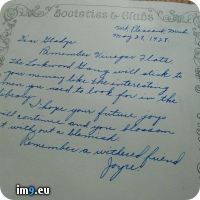 Societies & Clubs
Mt. Pleasant, Mich.
May 29, 1928.
Dear Gladys
Remember Vinegar Flats.
The Lockwood Gang will stick to
your memory like the interesting
men you used to look for in the
library.
I hope your future joys
will continue and you blossom
out without a blemish.
Remember a withered friend
Joyce
im9.eu